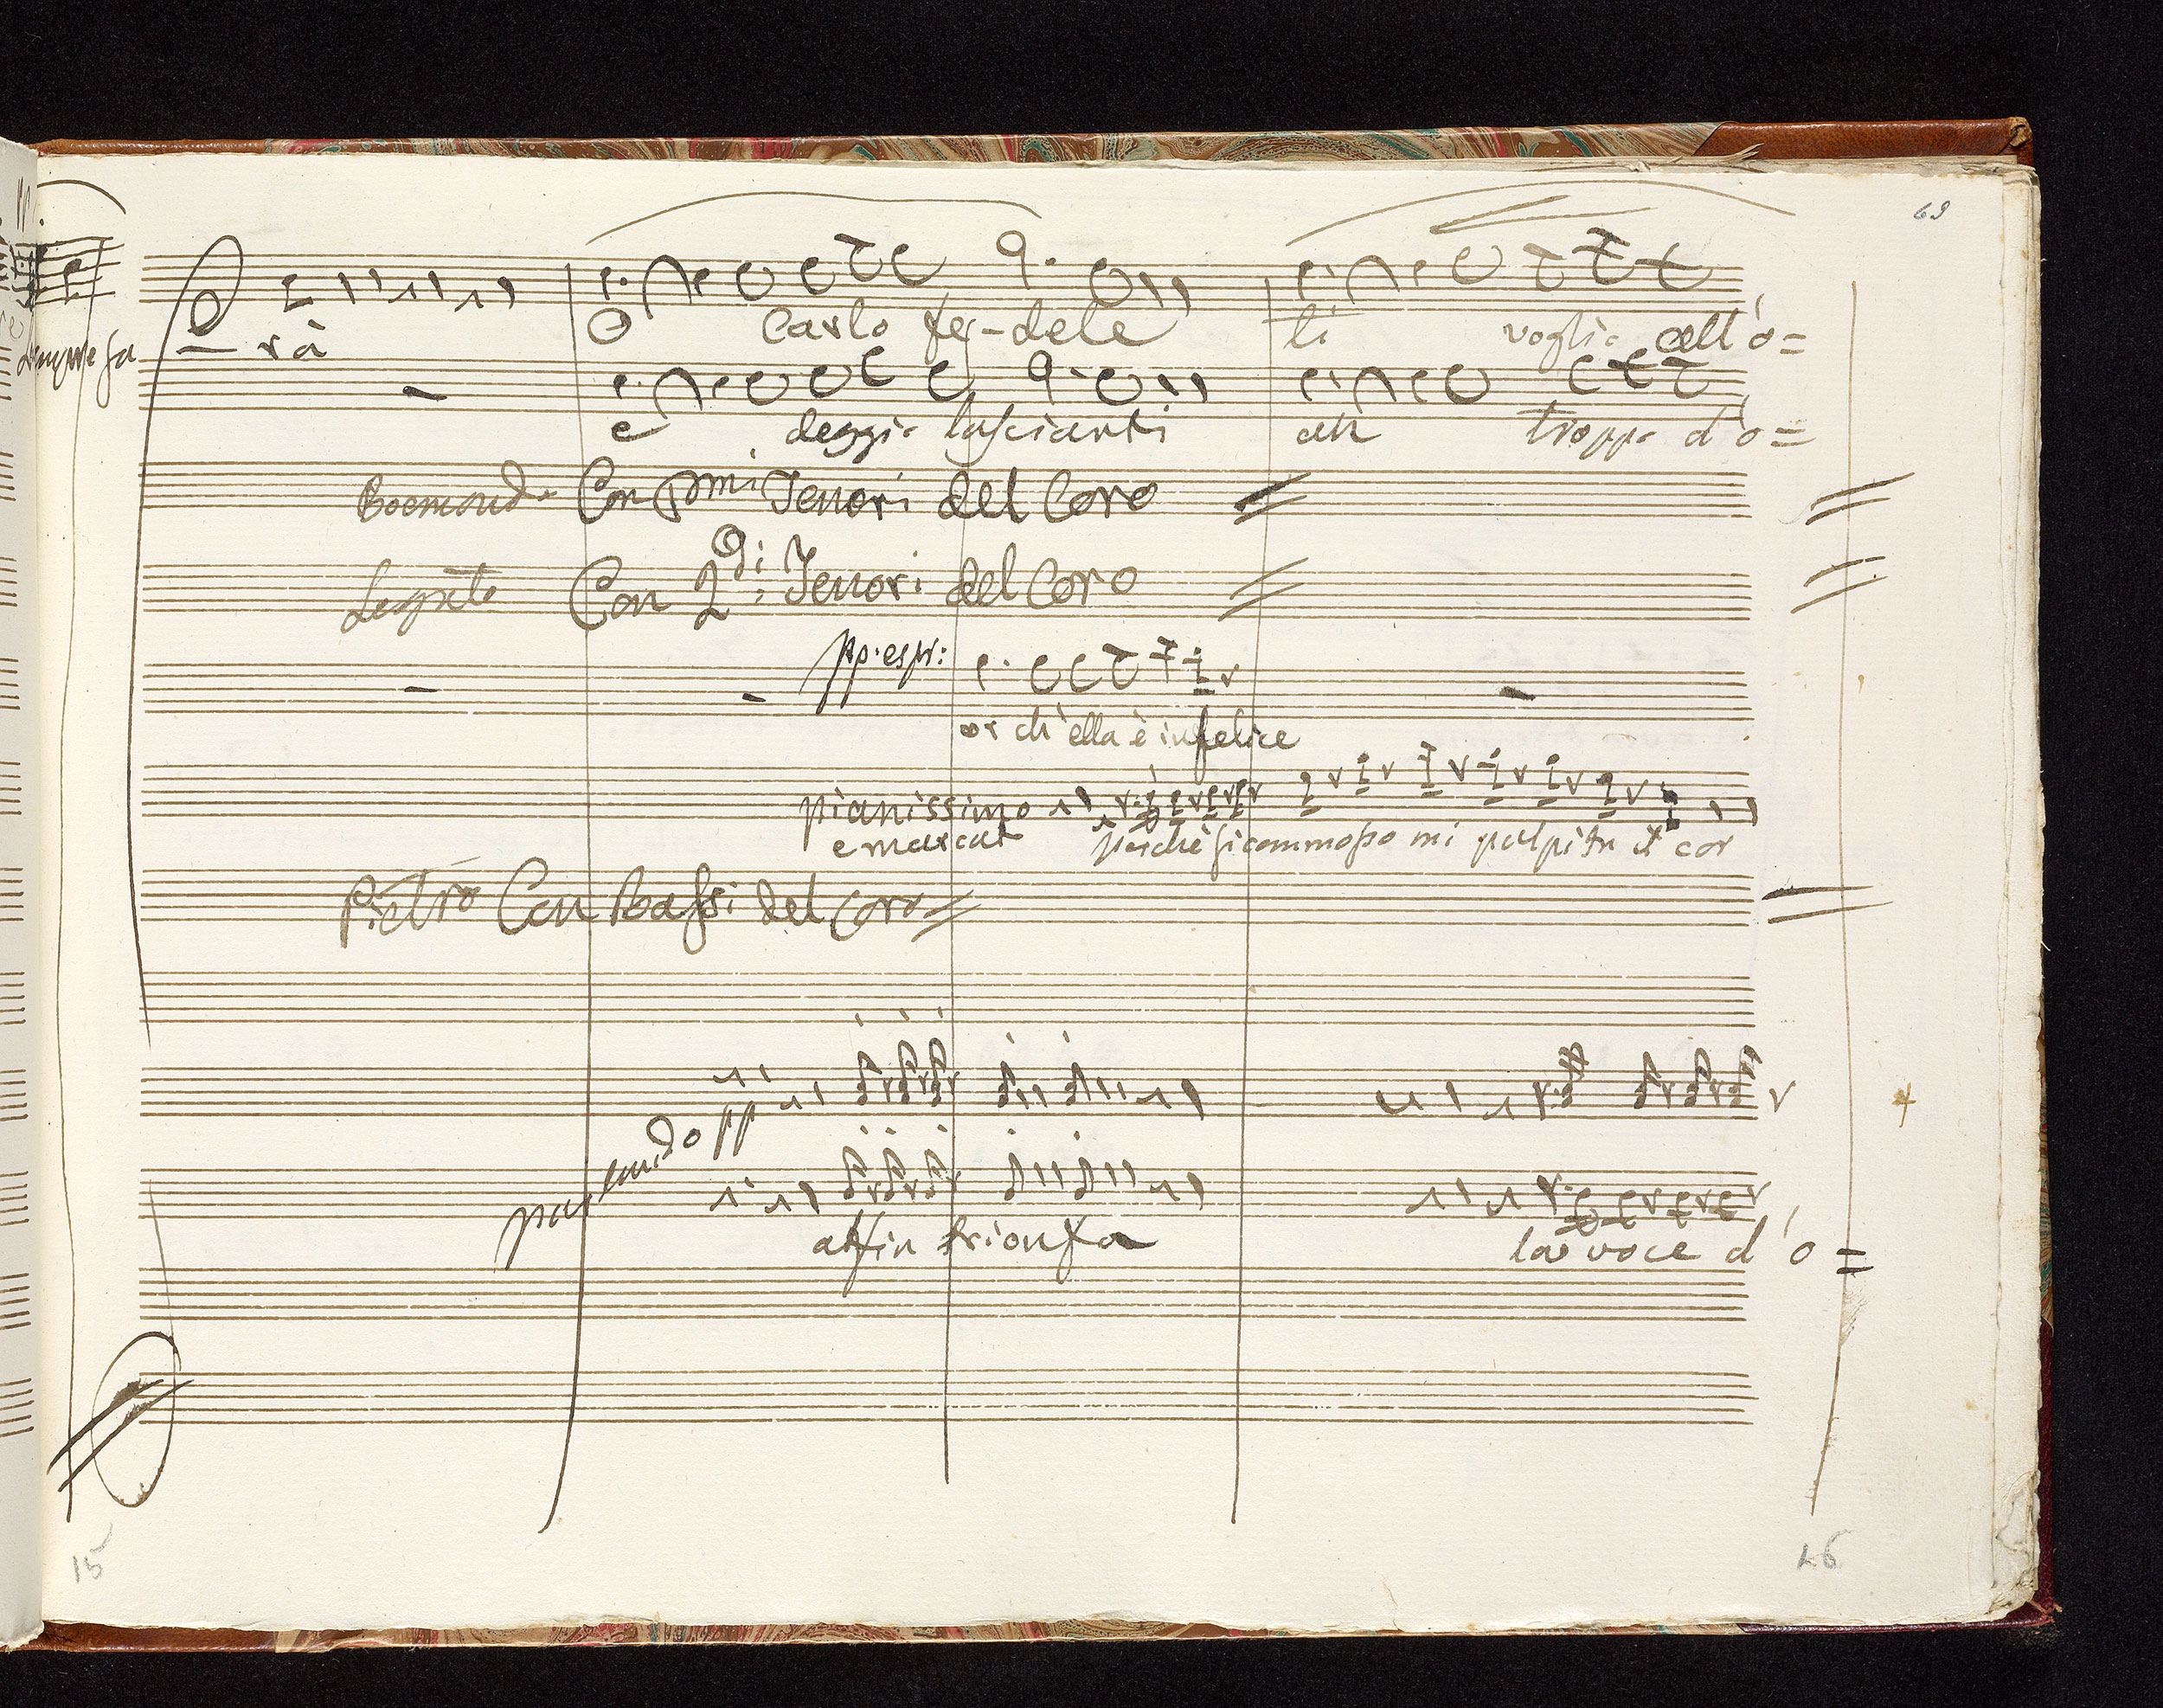 69
sempre sa
— rà
O Carlo fe-dele li voglio all'o=
e deggio lasciarti ah troppo d'o=
Boemondo Con pmi Tenori del Coro
Legato Con 2di: Tenori del Coro
pp. espr:
or ch'ella è infelice
pianissimo
e marcat perchè sì commosso mi palpita il cor
Pietro Con Bassi del coro
parlando pp
alfin trionfa la voce d'o=
15
16